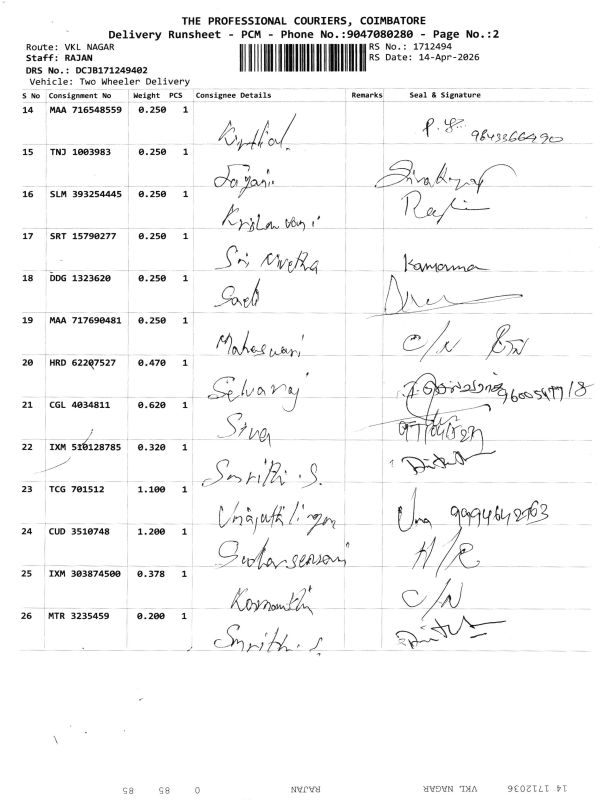 THE PROFESSIONAL COURIERS, COIMBATORE
Delivery Runsheet - PCM - Phone No.:9047080280 - Page No.:2
Route: VKL NAGAR RS No.: 1712494
Staff: RAJAN RS Date: 14-Apr-2026
DRS No.: DCJB171249402
Vehicle: Two Wheeler Delivery
S No Consignment No Weight PCS Consignee Details Remarks Seal & Signature
14 MAA 716548559 0.250 1
9843366490
15 TNJ 1003983 0.250 1
16 SLM 393254445 0.250 1
17 SRT 15790277 0.250 1
Sri Nivetha
18 DDG 1323620 0.250 1
19 MAA 717690481 0.250 1
Maheswari C/N
20 HRD 62207527 0.470 1
Selvaraj
21 CGL 4034811 0.620 1
Siva
22 IXM 510128785 0.320 1
Smrithi . S.
23 TCG 701512 1.100 1
Uma
24 CUD 3510748 1.200 1
H/R
25 IXM 303874500 0.378 1
C/N
26 MTR 3235459 0.200 1
Smrithi . S.
14 1712036 VKL NAGAR RAJAN 0 85 85